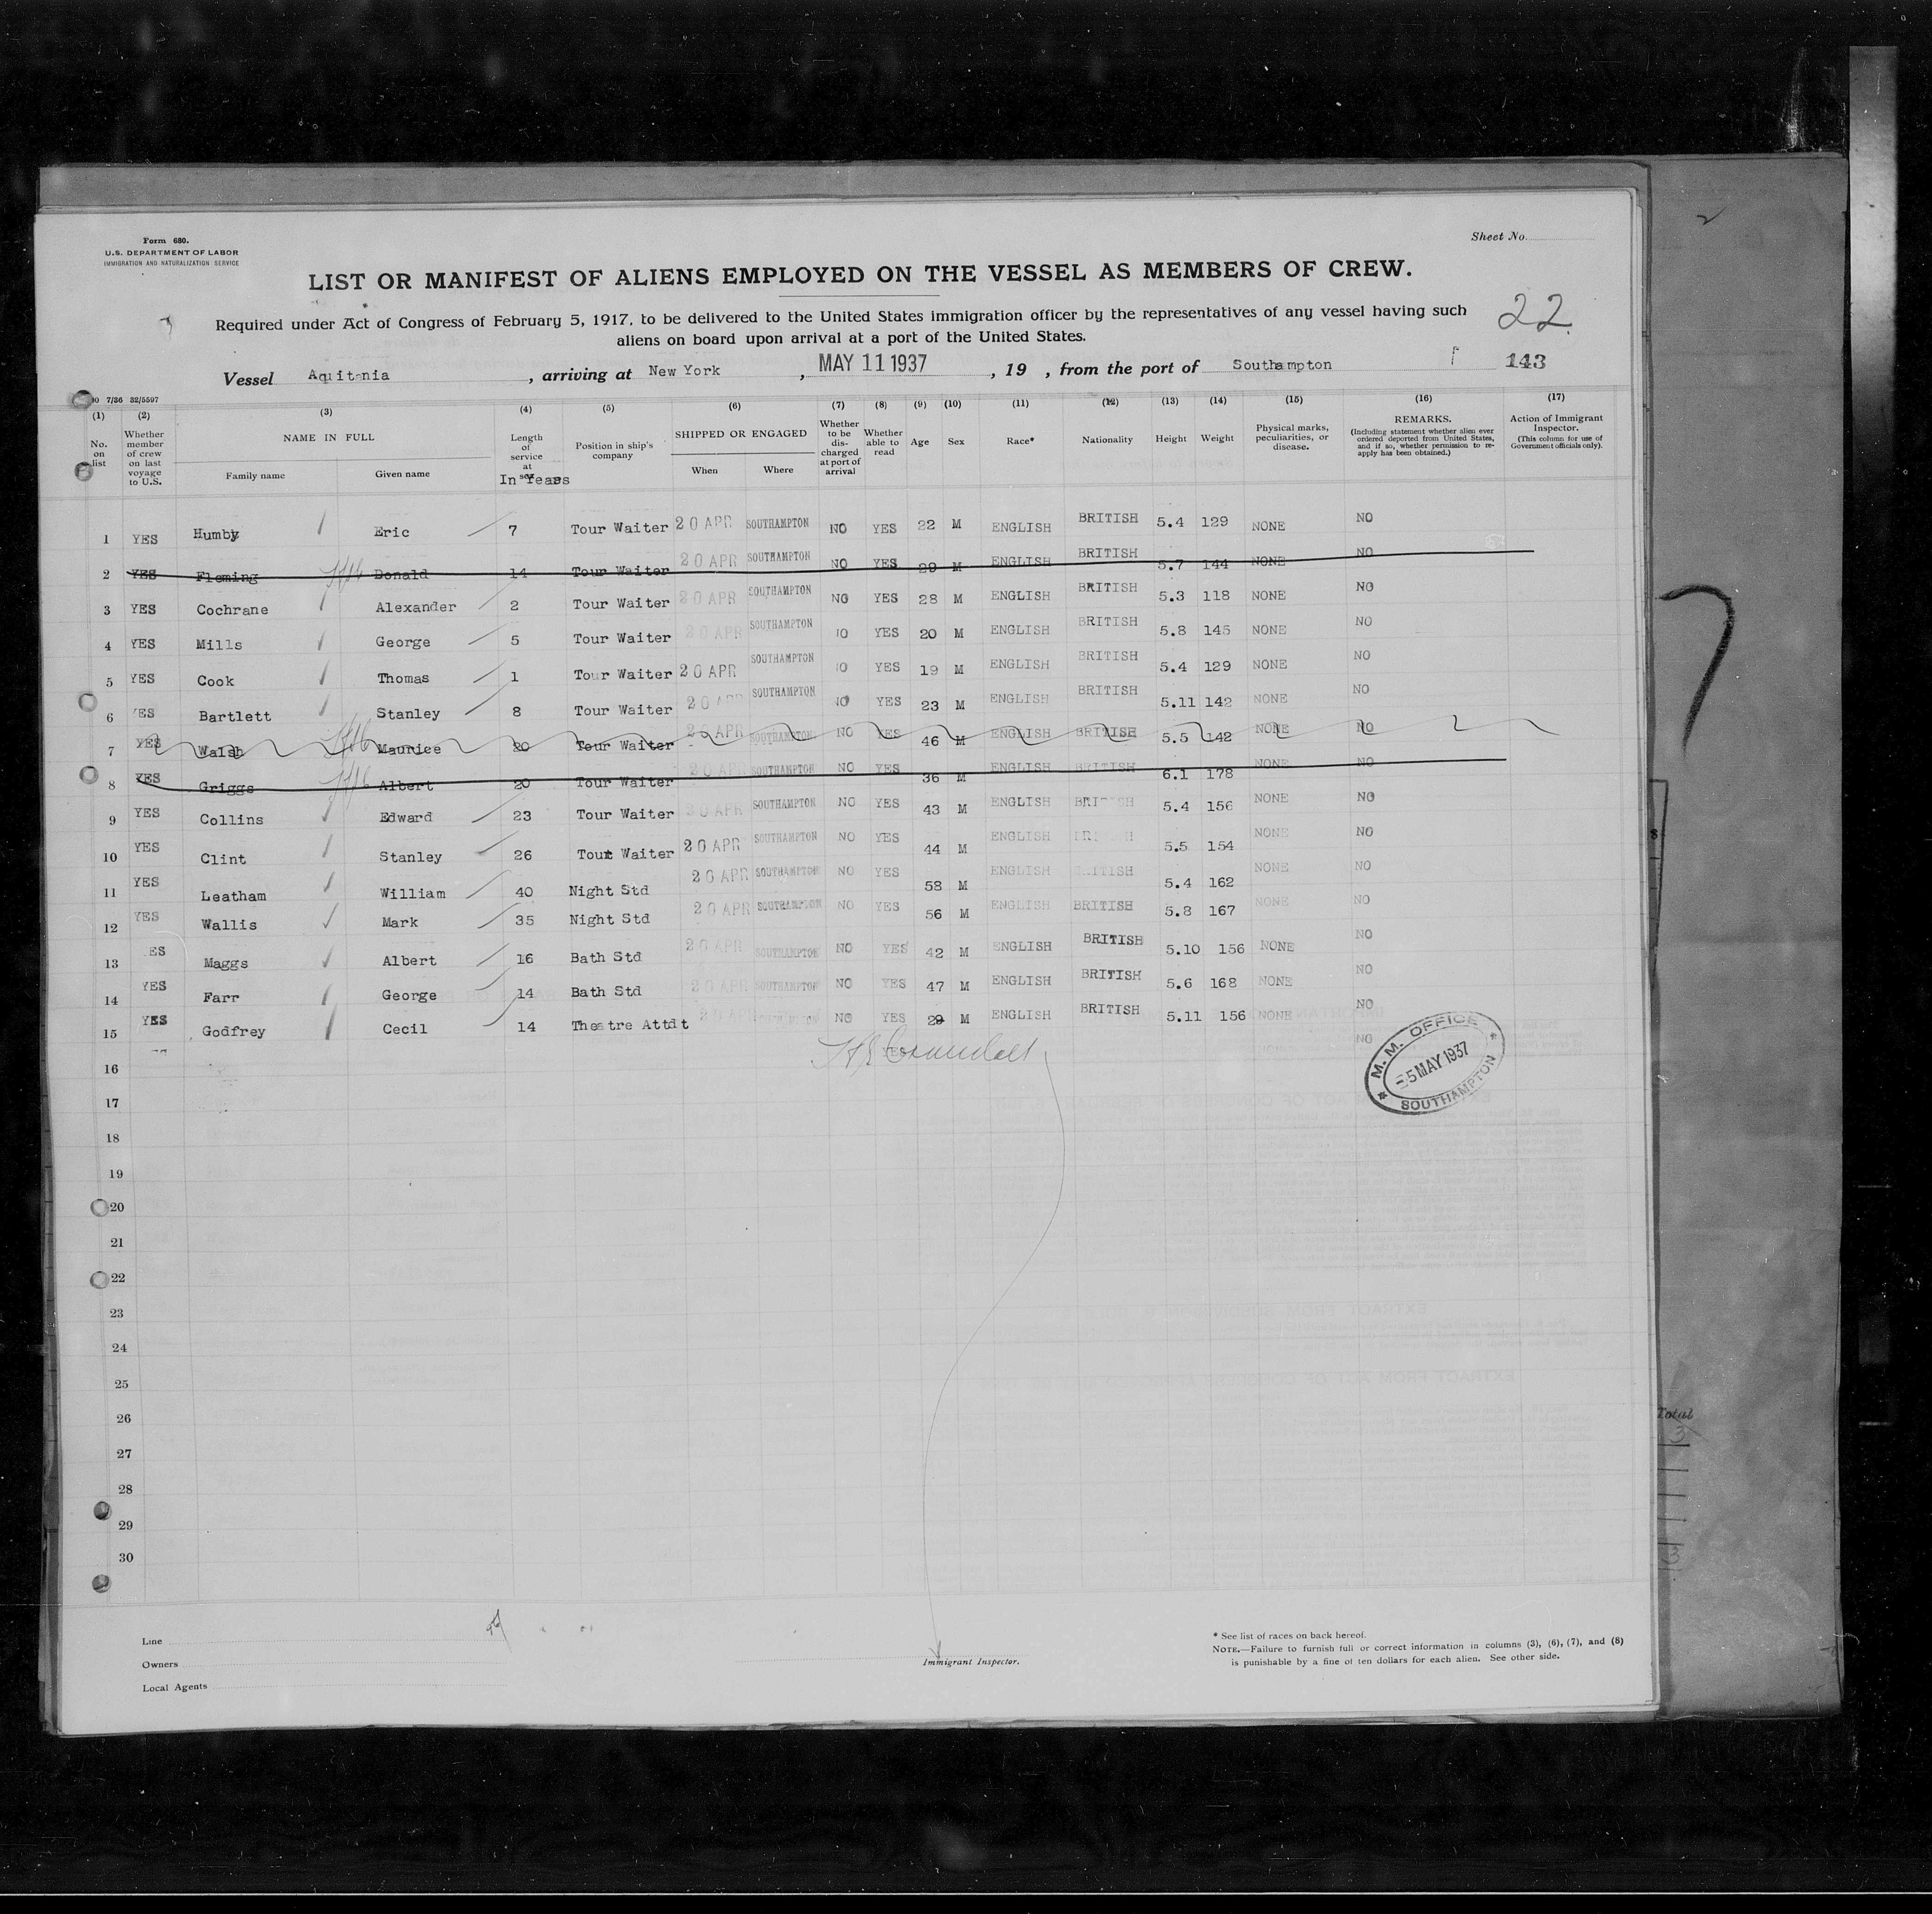 Form 680.
U.S. DEPARTMENT OF LABOR
IMMIGRATION AND NATURALIZATION SERVICE
Sheet No.
LIST OR MANIFEST OF ALIENS EMPLOYED ON THE VESSEL AS MEMBERS OF CREW.
Required under Act of Congress of February 5, 1917, to be delivered to the United States immigration officer by the representatives of any vessel having such
aliens on board upon arrival at a port of the United States.
22
Vessel Aquitania, arriving at New York, MAY 11 1937, 19 , from the port of Southampton 143
7/36 32/5597
(1) (2) (3) (4) (5) (6) (7) (8) (9) (10) (11) (12) (13) (14) (15) (16) (17)
No. on list
Whether member of crew on last voyage to U.S.
NAME IN FULL
Family name Given name
Length of service at sea
In Years
Position in ship's company
SHIPPED OR ENGAGED
When Where
Whether to be discharged at port of arrival
Whether able to read
Age Sex Race* Nationality Height Weight
Physical marks, peculiarities, or disease.
REMARKS.
(Including statement whether alien ever ordered deported from United States, and if so, whether permission to re-apply has been obtained.)
Action of Immigrant Inspector.
(This column for use of Government officials only).
1 YES Humby Eric 7 Tour Waiter 20 APR SOUTHAMPTON NO YES 22 M ENGLISH BRITISH 5.4 129 NONE NO
2 YES Fleming Donald 14 Tour Waiter 20 APR SOUTHAMPTON NO YES 29 M ENGLISH BRITISH 5.7 144 NONE NO
3 YES Cochrane Alexander 2 Tour Waiter 20 APR SOUTHAMPTON NO YES 28 M ENGLISH BRITISH 5.3 118 NONE NO
4 YES Mills George 5 Tour Waiter 20 APR SOUTHAMPTON NO YES 20 M ENGLISH BRITISH 5.8 145 NONE NO
5 YES Cook Thomas 1 Tour Waiter 20 APR SOUTHAMPTON NO YES 19 M ENGLISH BRITISH 5.4 129 NONE NO
6 YES Bartlett Stanley 8 Tour Waiter 20 APR SOUTHAMPTON NO YES 23 M ENGLISH BRITISH 5.11 142 NONE NO
7 YES Walsh Maurice 20 Tour Waiter 20 APR SOUTHAMPTON NO YES 46 M ENGLISH BRITISH 5.5 142 NONE NO
8 YES Griggs Albert 20 Tour Waiter 20 APR SOUTHAMPTON NO YES 36 M ENGLISH BRITISH 6.1 178 NONE NO
9 YES Collins Edward 23 Tour Waiter 20 APR SOUTHAMPTON NO YES 43 M ENGLISH BRITISH 5.4 156 NONE NO
10 YES Clint Stanley 26 Tour Waiter 20 APR SOUTHAMPTON NO YES 44 M ENGLISH BRITISH 5.5 154 NONE NO
11 YES Leatham William 40 Night Std 20 APR SOUTHAMPTON NO YES 58 M ENGLISH BRITISH 5.4 162 NONE NO
12 YES Wallis Mark 35 Night Std 20 APR SOUTHAMPTON NO YES 56 M ENGLISH BRITISH 5.8 167 NONE NO
13 ES Maggs Albert 16 Bath Std 20 APR SOUTHAMPTON NO YES 42 M ENGLISH BRITISH 5.10 156 NONE NO
14 YES Farr George 14 Bath Std 20 APR SOUTHAMPTON NO YES 47 M ENGLISH BRITISH 5.6 168 NONE NO
15 YES Godfrey Cecil 14 Theatre Attdt 20 APR NO YES 29 M ENGLISH BRITISH 5.11 156 NONE NO
16 YES NO
M. M. OFFICE
5 MAY 1937
SOUTHAMPTON
17
18
19
20
21
22
23
24
25
26
27
28
29
30
Total
Line
Owners
Local Agents
Immigrant Inspector.
* See list of races on back hereof.
NOTE.—Failure to furnish full or correct information in columns (3), (6), (7), and (8)
is punishable by a fine of ten dollars for each alien. See other side.